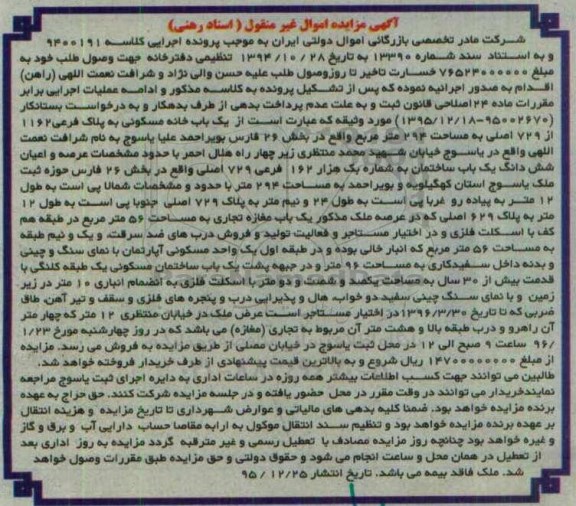 آگهی مزایده اموال غیر منقول ( اسناد رهنی)
شرکت مادر تخصصی بازرگانی اموال دولتی ایران به موجب پرونده اجرایی کلاسه ۹۴۰۰۱۹۱
و به استناد سند شماره ۱۳۳۹۰ به تاریخ ۲۸ / ۱۰ / ۱۳۹۴ تنظیمی دفترخانه جهت وصول طلب خود به
مبلغ ۷۶۵۲۳۰۰۰۰۰۰ خسارت تاخیر تا روزوصول طلب علیه حسن والی نژاد و شرافت نعمت اللهی (راهن)
اقدام به صدور اجرائیه نموده که پس از تشکیل پرونده به کلاسه مذکور و ادامه عملیات اجرایی برابر
مقررات ماده ۳۴ اصلاحی قانون ثبت و به علت عدم پرداخت بدهی از طرف بدهکار و به درخواست بستانکار
(۹۵۰۰۲۶۷۰-۱۳۹۵/۱۲/۱۸) مورد وثیقه که عبارت است از یک باب خانه مسکونی به پلاک فرعی ۱۱۶۲
از ۷۲۹ اصلی به مساحت ۲۹۴ متر مربع واقع در بخش ۲۶ فارس بویراحمد علیا یاسوج به نام شرافت نعمت
اللهی واقع در یاسوج خیابان شهید محمد منتظری زیر چهار راه هلال احمر با حدود مشخصات عرصه و اعیان
شش دانگ یک باب ساختمان به شماره یک هزار ۱۶۲ فرعی ۷۲۹ اصلی واقع در بخش ۲۶ فارس حوزه ثبت
ملک یاسوج استان کهگیلویه و بویراحمد به مساحت ۲۹۴ متر با حدود و مشخصات شمالا پی است به طول
۱۲ متر به پیاده رو غربا پی است به طول ۲۴ و نیم متر به پلاک ۷۲۹ اصلی جنوبا پی است به طول ۱۲
متر به پلاک ۶۲۹ اصلی که در عرصه ملک مذکور یک باب مغازه تجاری به مساحت ۵۶ متر مربع در طبقه هم
کف با اسکلت فلزی و در اختیار مستاجر و فعالیت تولید و فروش درب های ضد سرقت، و یک و نیم طبقه
به مساحت ۵۶ متر مربع که انبار خالی بوده و در طبقه اول یک واحد مسکونی آپارتمان با نمای سنگ و چینی
و بدنه داخل سفیدکاری به مساحت ۹۶ متر و در جبهه پشت یک باب ساختمان مسکونی یک طبقه کلنگی با
قدمت بیش از ۳۰ سال به مساحت یکصد و شصت و دو متر با اسکلت فلزی به انضمام انباری ۱۰ متر در زیر
زمین و با نمای سنگ چینی سفید دو خواب، هال و پذیرایی درب و پنجره های فلزی و سقف و تیر آهن، طاق
ضربی که تا تاریخ ۱۳۹۶/۳/۳۰ در اختیار مستاجر است عرض ملک در خیابان منتظری ۱۲ متر که چهار متر
آن راهرو و درب طبقه بالا و هشت متر آن مربوط به تجاری (مغازه) می باشد که در روز چهارشنبه مورخ ۱/۲۳
/۹۶ ساعت ۹ صبح الی ۱۲ در محل ثبت یاسوج در خیابان مصلی از طریق مزایده به فروش می رسد. مزایده
از مبلغ ۱۴۷۰۰۰۰۰۰۰۰ ریال شروع و به بالاترین قیمت پیشنهادی از طرف خریدار فروخته خواهد شد.
طالبین می توانند جهت کسب اطلاعات بیشتر همه روزه در ساعات اداری به دایره اجرای ثبت یاسوج مراجعه
نمایند خریدار می توانند در وقت مقرر در محل حضور یافته و در جلسه مزایده شرکت کنند. حق حراج به عهده
برنده مزایده خواهد بود. ضمنا کلیه بدهی های مالیاتی و عوارض شهرداری تا تاریخ مزایده و هزینه انتقال
بر عهده برنده مزایده خواهد بود و تنظیم سند انتقال موکول به ارایه مفاصا حساب دارایی آب و برق و گاز
و غیره خواهد بود چنانچه روز مزایده مصادف با تعطیل رسمی و غیر مترقبه گردد مزایده به روز اداری بعد
از تعطیل در همان محل و ساعت انجام می شود و حقوق دولتی و حق مزایده طبق مقررات وصول خواهد
شد. ملک فاقد بیمه می باشد. تاریخ انتشار ۱۲/۲۵ / ۹۵